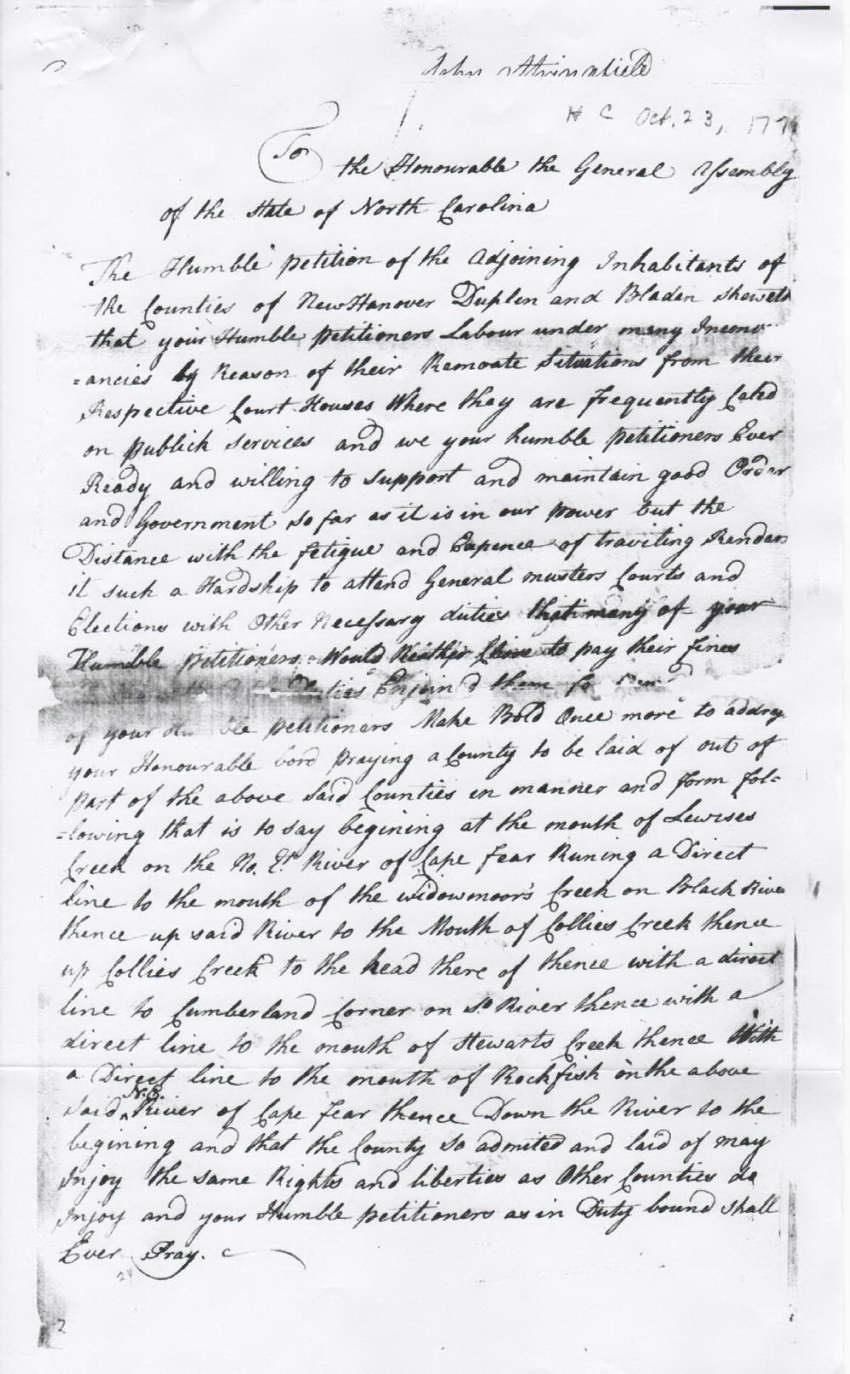 John
H C Oct. 23, 177
To
the Honourable the General Assembly
of the State of North Carolina
The Humble petition of the Adjoining Inhabitants of
the Counties of New Hanover Duplin and Bladen Sheweth
that your Humble petitioners Labour under many Inconv-
=ancies by Reason of their Remoate Situations from their
Respective Court Houses Where they are frequently Caled
on publick Services and we your humble petitioners Ever
Ready and willing to Support and maintain good Order
and Government so far as it is in our power but the
Distance with the fetigue and Expence of traviling Renders
it such a Hardship to attend General musters Courts and
Elections with Other Necessary duties that many of your
Humble petitioners Would Neither to pay their fines
Enjoin'd them
of your petitioners Make Bold Once more to addres
your Honourable bord praying a County to be laid of out of
part of the above Said Counties in manner and form fol-
=lowing that is to say begining at the mouth of Lewises
Creek on the No. Et. River of Cape Fear Runing a Direct
line to the mouth of the widowmoor's Creek on Black River
thence up said River to the Mouth of Collies Creek thence
up Collies Creek to the head there of thence with a direct
line to Cumberland Corner on So. River thence with a
direct line to the mouth of Stewarts Creek thence With
a Direct line to the mouth of Rockfish on the above
Said N.E. River of Cape Fear thence Down the River to the
begining and that the County so admited and laid of may
Injoy the same Rights and liberties as Other Counties do
Injoy and your Humble petitioners as in Duty bound Shall
Ever Pray.